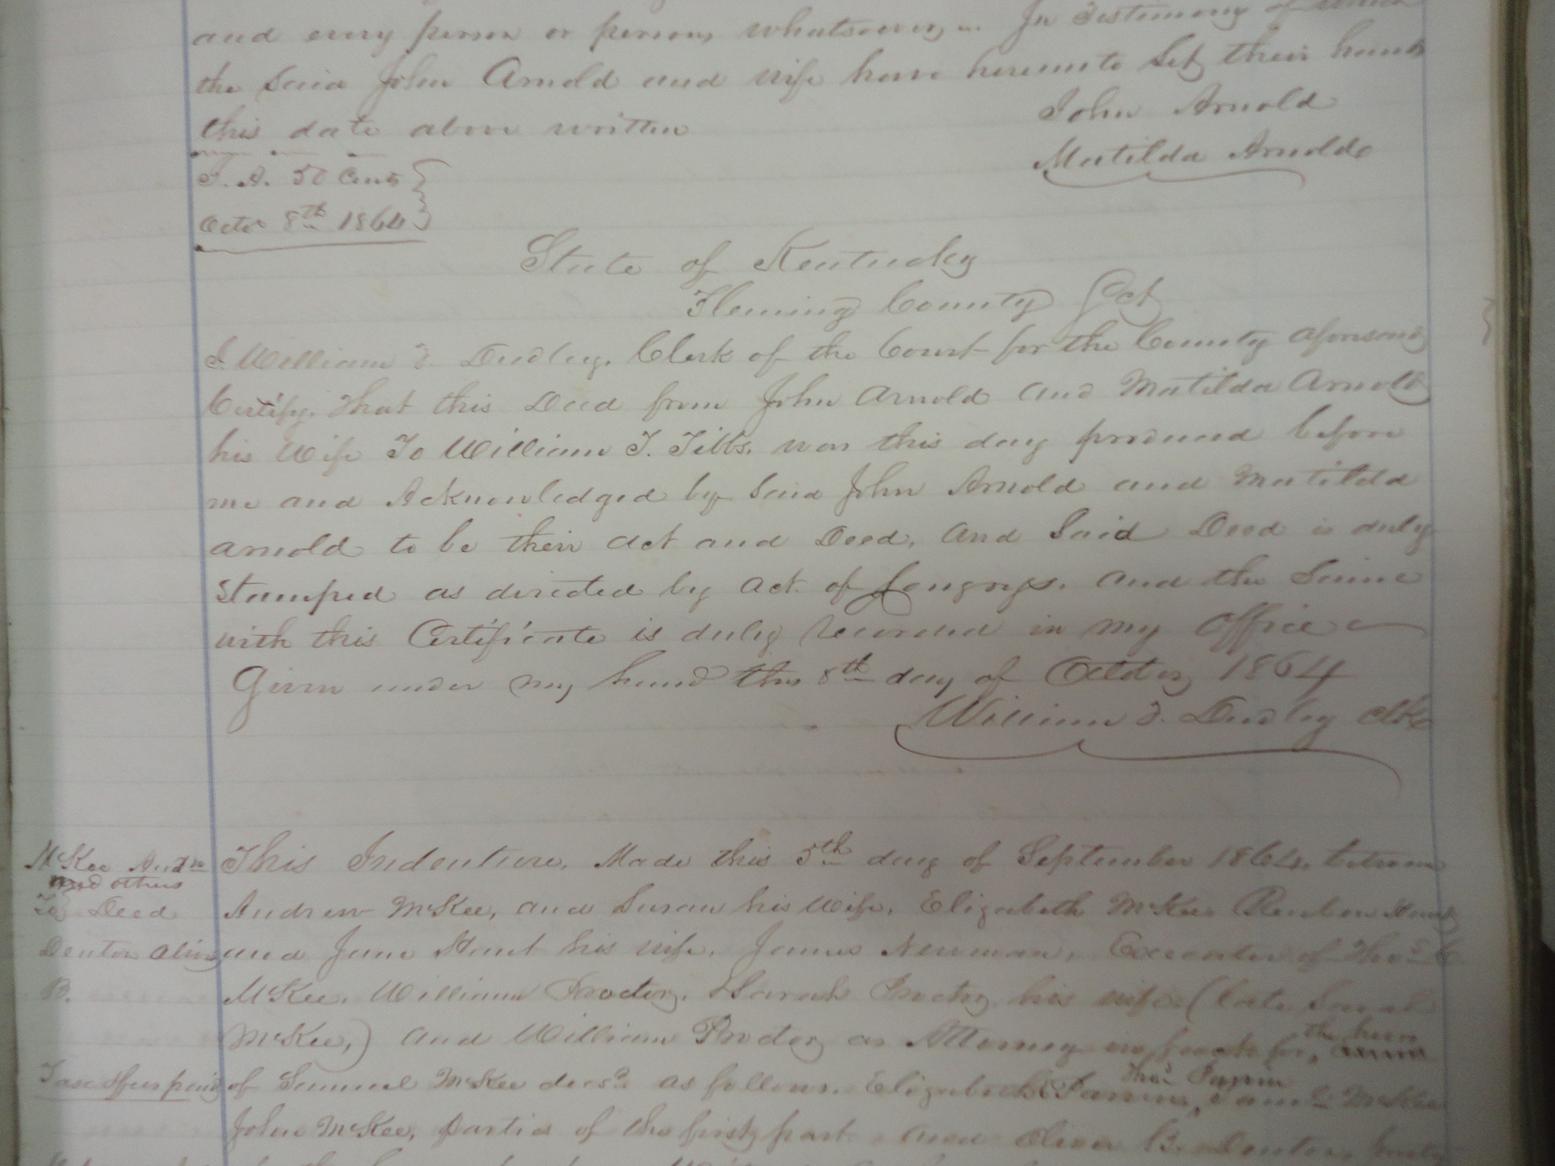 and every person or persons whatsoever, In Testimony of which
the Said John Arnold and wife have hereunto Set their hands
this date above written
John Arnold
Matilda Arnold
I. R. 50 Cents
Octo 8th 1864
State of Kentucky
Fleming County Sct
I William T. Dudley, Clerk of the Court for the County aforesaid
Certify, That this Deed from John Arnold and Matilda Arnold
his Wife To William T. Tibbs, was this day produced before
me and Acknowledged by Said John Arnold and Matilda
Arnold to be their act and Deed, and Said Deed is duly
Stamped as directed by act of Congress. And the Same
with this Certificate is duly recorded in my office
Given under my hand this 8th day of October 1864
William T. Dudley Clk
McKee Andw
and others
To Deed
Denton Oliver
B.
This Indenture, Made this 5th day of September 1864, between
Andrew McKee, and Susan his Wife, Elizabeth McKee Reuben Hunt
and Jane Hunt his wife, James Newman, Executor of Thos C
McKee, William Proctor, Sarah Proctor his wife (late Sarah
McKee,) and William Proctor as Attorney in fact for, the heirs
Tax & fees paid
of Samuel McKee decd as follows, Elizabeth Saml McKee
John McKee, parties of the first part and Oliver B. Denton, party